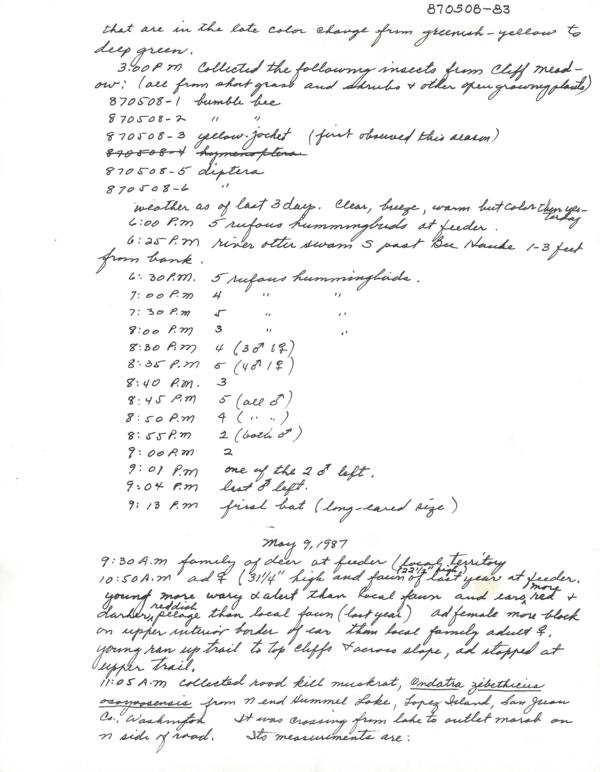 870508-83
that are in the late color change from greenish-yellow to
deep green.
3:00 P.M. Collected the following insects from Cliff Mead-
ow: (all from short grass and shrubs & other open growing plants)
870508-1 bumble bee
870508-2 " "
870508-3 yellow-jacket (first observed this season)
870508-4 hymenoptera
870508-5 diptera
870508-6 "
weather as of last 3 day. Clear, breeze, warm but color then yes-
terday
6:00 P.M 5 rufous hummingbirds at feeder.
6:25 P.M river otter swam S past 1-3 feet
from bank.
6:30 P.M. 5 rufous hummingbirds.
7:00 P.M 4 " "
7:30 P.M 5 " "
8:00 P.M 3 " "
8:30 P.M 4 (3♂ 1♀)
8:35 P.M 5 (4♂ 1♀)
8:40 P.M. 3
8:45 P.M 5 (all ♂)
8:50 P.M 4 (" ")
8:55 P.M 2 (both ♂)
9:00 P.M 2
9:01 P.M one of the 2 ♂ left.
9:04 P.M last ♂ left.
9:13 P.M first bat (long-eared size)
May 9, 1987
9:30 A.M family of deer at feeder (local territory
10:50 A.M ad ♀ (31¼" high and fawn (22½" high) of last year at feeder.
young more wary & alert than local fawn and ears more red &
darker, reddish pelage than local fawn (last year) ad female more black
on upper interior border of ear than local family adult ♀.
young ran up trail to top cliffs & across slope, ad stopped at
upper trail.
11:05 A.M collected road kill muskrat, Ondatra zibethicus
osoyoosensis from N end Hummel Lake, Lopez Island, San Juan
Co., Washington It was crossing from lake to outlet marsh on
N side of road. Its measurements are: